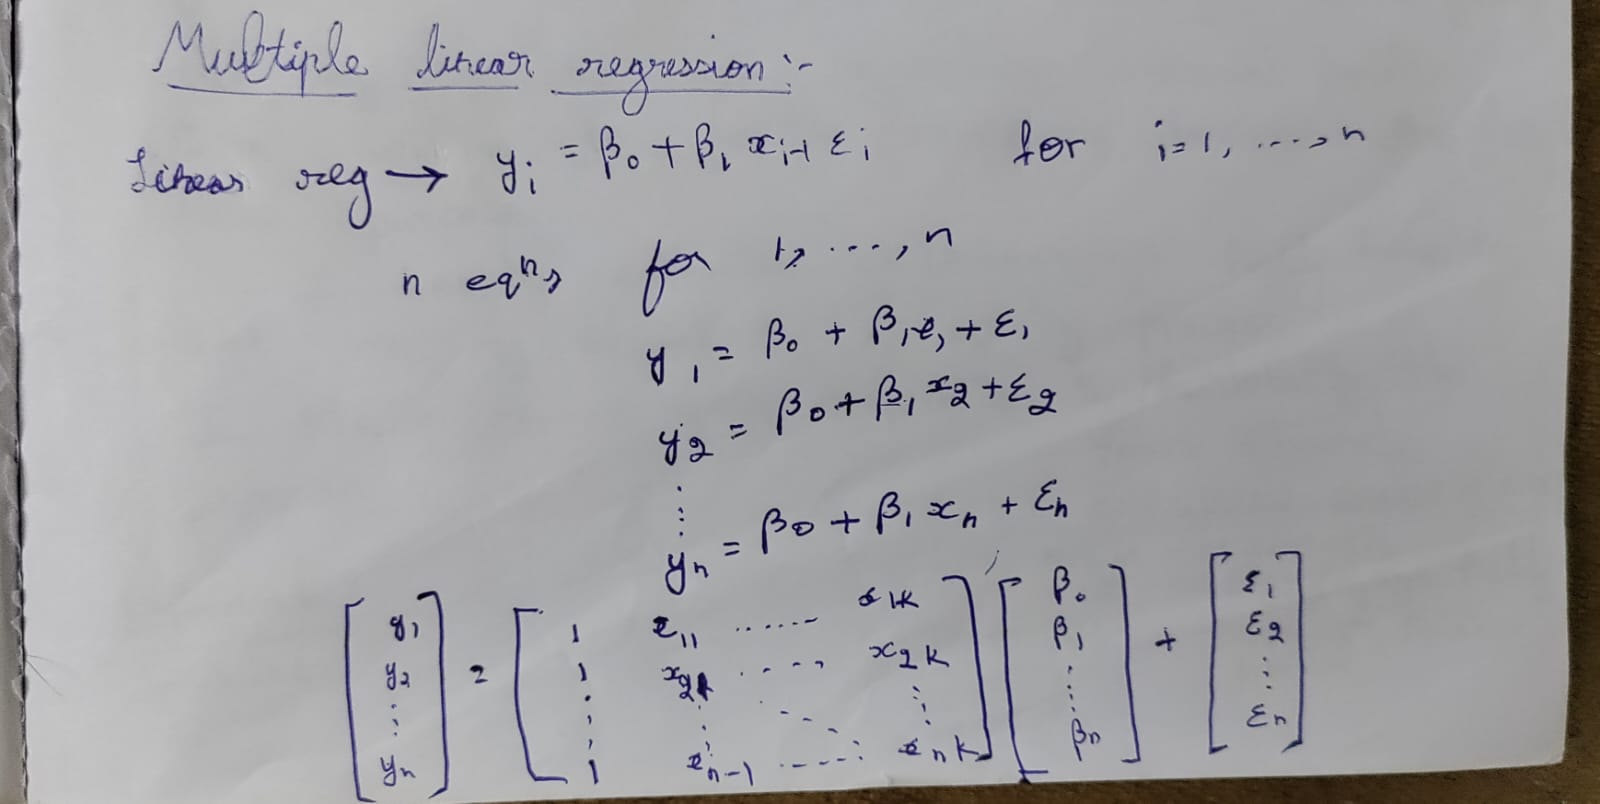 Multiple linear regression :-
Linear reg → yᵢ = β₀ + β₁ xᵢ + εᵢ for i=1, ...., n
n eqⁿs for 1, ...., n
y₁ = β₀ + β₁x₁ + ε₁
y₂ = β₀ + β₁ x₂ + ε₂
⋮
yₙ = β₀ + β₁ xₙ + εₙ
[y₁ y₂ ⋮ yₙ] = [1 x₁₁ ...... x₁ₖ; 1 x₂₁ ..... x₂ₖ; ⋮ ⋮ ⋱ ⋮; 1 xₙ₋₁ ...... xₙₖ] [β₀ β₁ ⋮ βₙ] + [ε₁ ε₂ ⋮ εₙ]